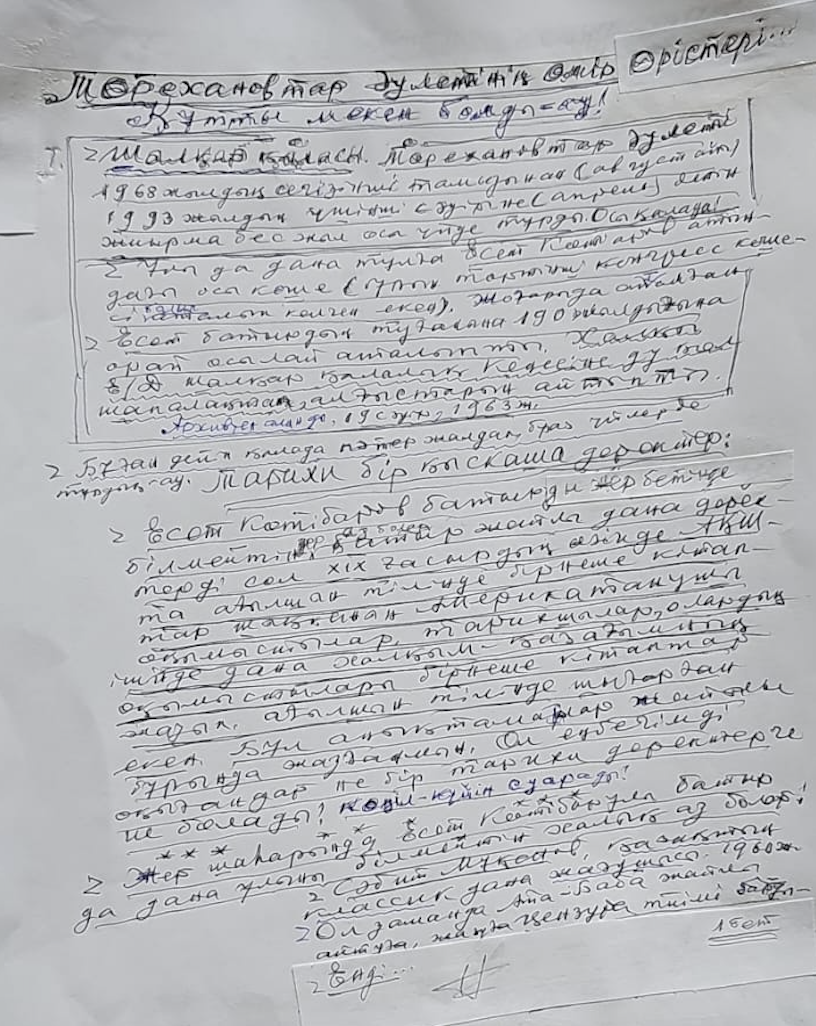 Төреханов тар әулетінің өмір өрістері...
Құтты мекен болды-ау!
1. Шалқар қаласы. Төрехановтар әулеті
1968 жылдың сегізінші тамызынан (август айы)
1993 жылдың үшінші сәуіріне (апрель) дейін
жиырма бес жыл осы үйде тұрды. Осы қалада!
2 Ұлы да дана тұлға Есет Көтібаров атын-
дағы осы көше (бұрын тоғызыншы конгресс көше-
сі аталып келген екен). Жоғарыда аталған
2 Есет батырдың туғанына 190 жылдығына
орай осылай аталыпты. Халқы
Шалқар қалалық Кеңесіне ду қол
шапалақтап, алғыстарын айтыпты.
1963 ж.
2 Бұған дейін қалада пәтер жалдап, біраз үйлерде
тұрдық-ау. Тарихи бір қысқаша деректер:
2 Есет Көтібаров батырды жер бетінде
білмейтін жер аз болар. Батыр жайлы дана дерек-
терді сол XIX ғасырдың өзінде АҚШ-
та ағылшын тілінде бірнеше кітап-
тар жазған Америка танушы
оқымыстылар, тарихшылар, олардың
ішінде дана халқым-қазағымның
оқымыстылары бірнеше кітаптар
жазып, ағылшын тілінде шығарған
екен. Бұл анықтамалар жайлы
бұрында жазғанмын. Ол еңбегімді
оқығандар не бір тарихи деректерге
ие болады! көңіл-күйін суарады!
* * * * * * *
2 Жер шаһарында Есет Көтібарұлы батыр
да дана ұлыны білмейтін халық аз болар!
2 Сәбит Мұқанов, қазақтың
классик дана жазушысы. 1960 ж
2 Ол заманда Ата-Баба жайлы
айтуға, жазуға цензура тиімі
1 бет
2 Енді...